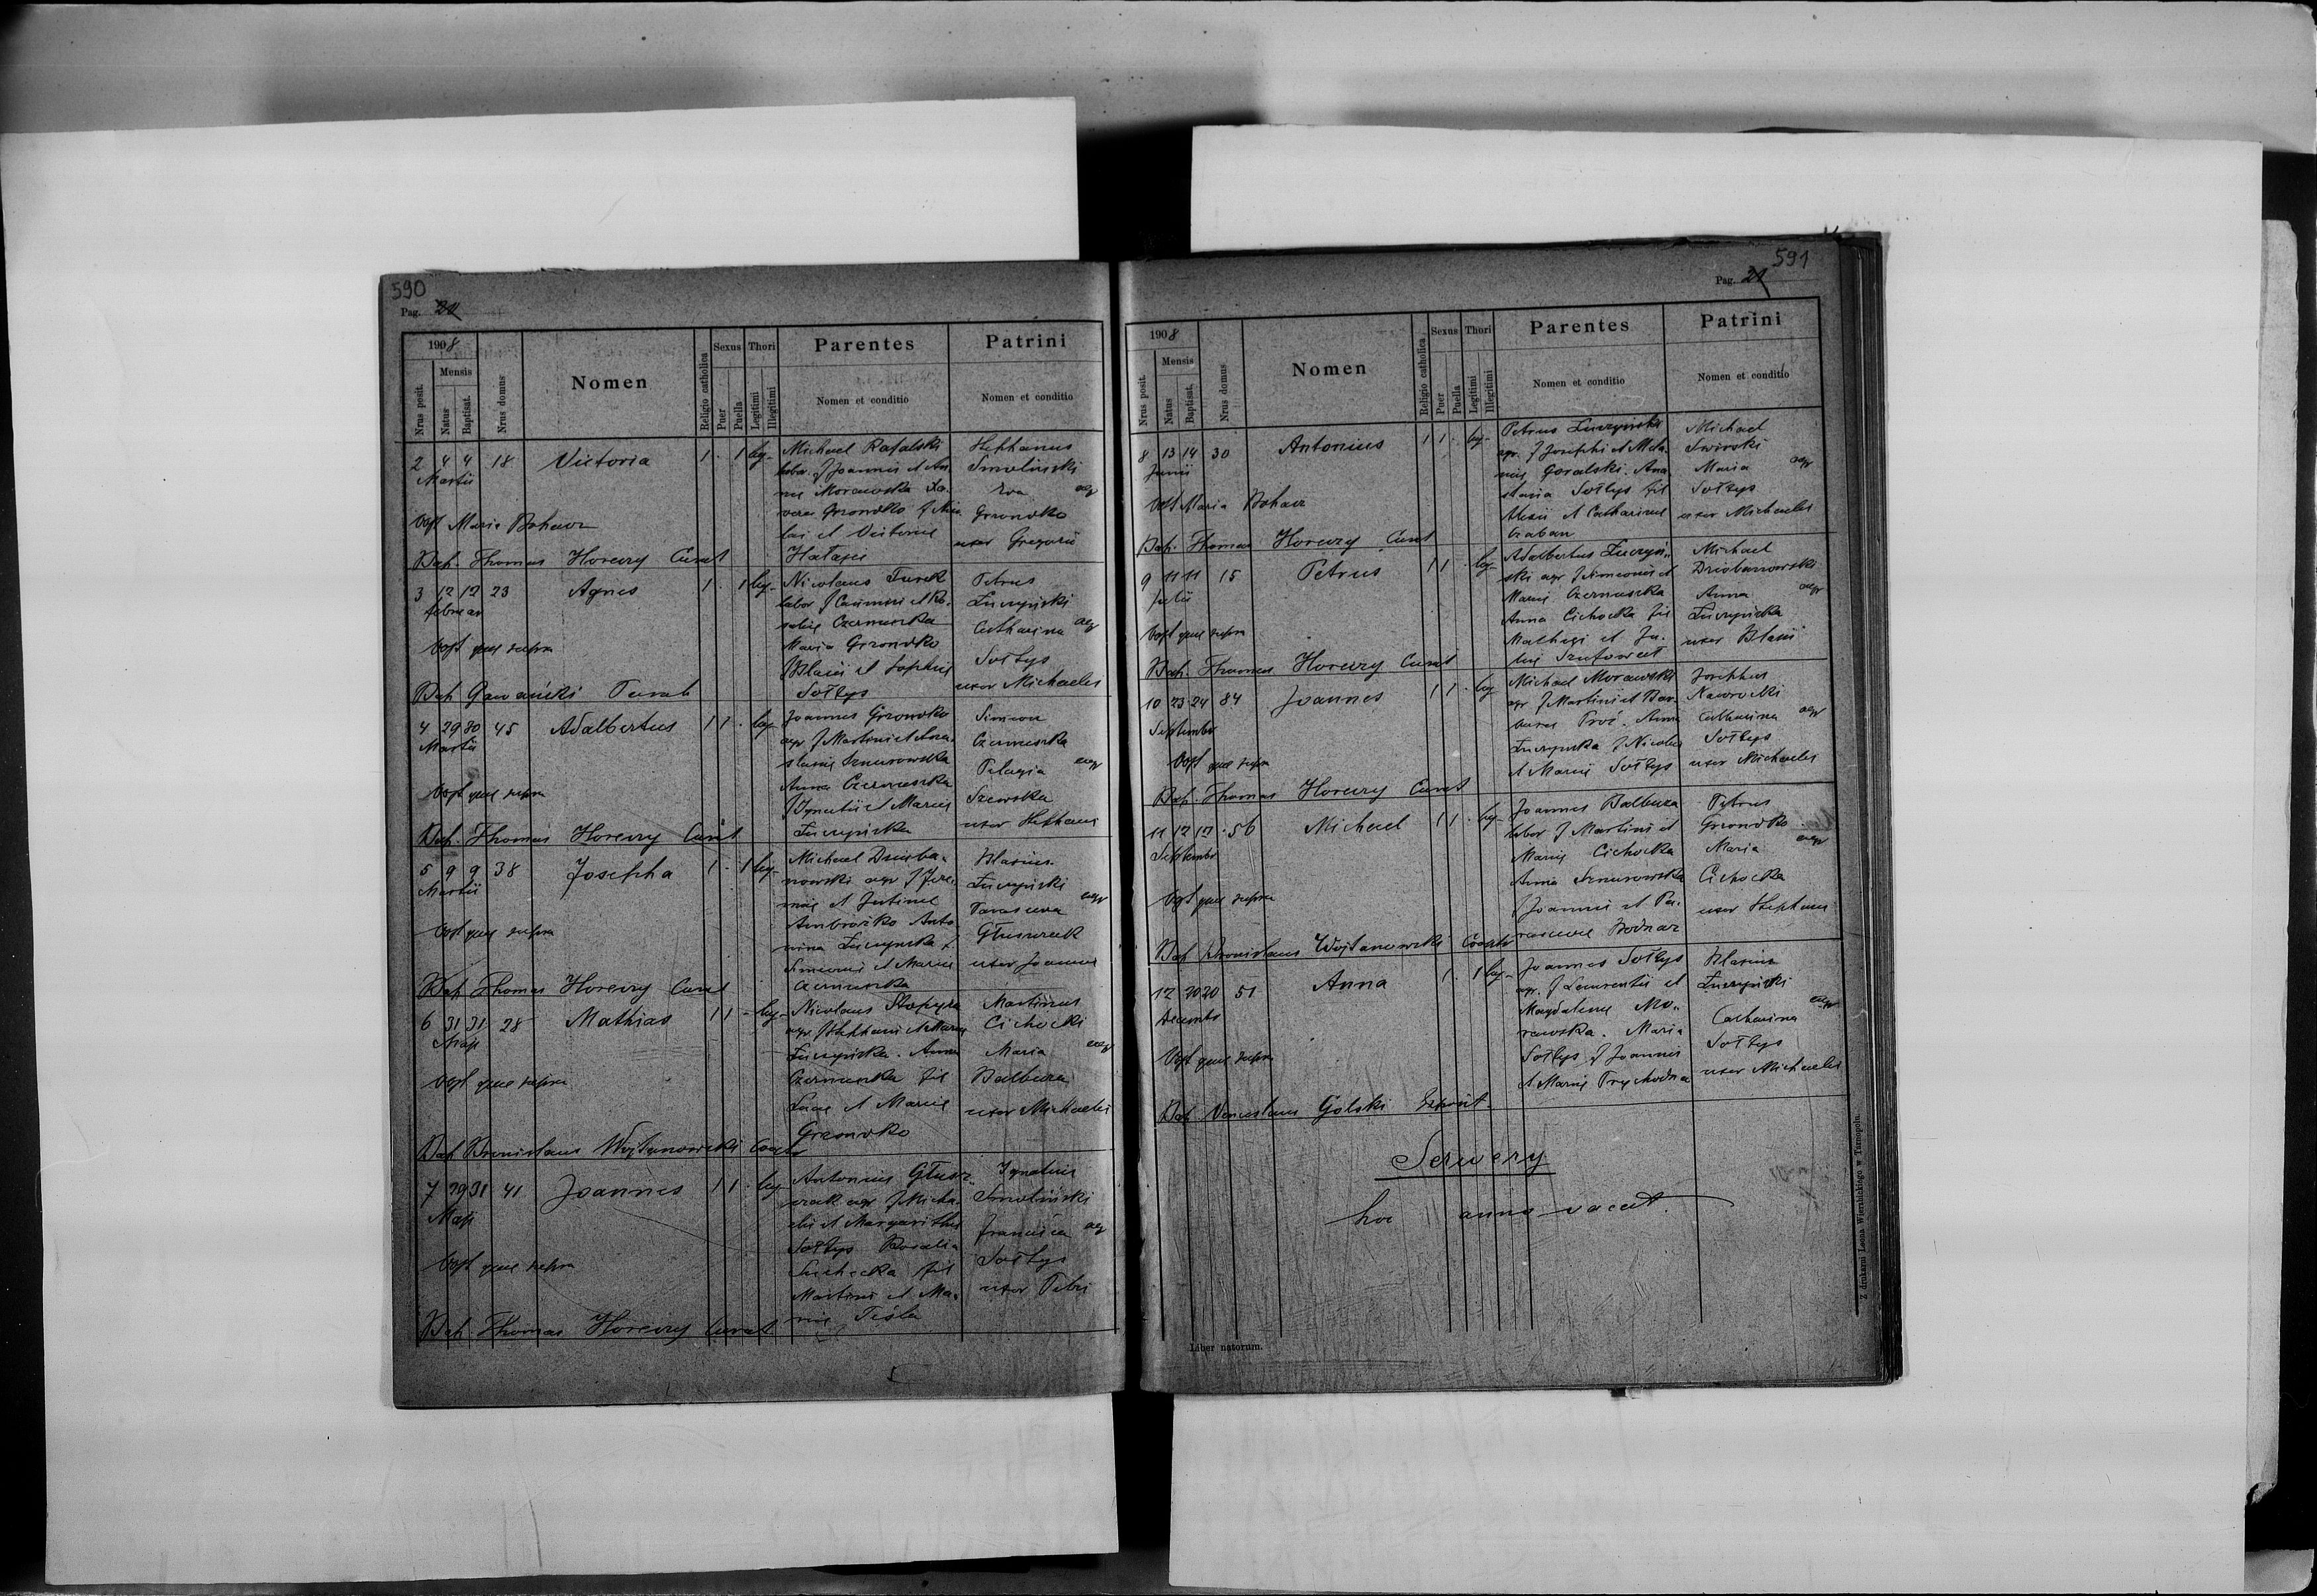 590
Pag. 21
1908
Nrus posit.
Mensis
Natus
Baptisat.
Nrus domus
Nomen
Religio catholica
Sexus
Puer
Puella
Thori
Legitimi
Illegitimi
Parentes
Nomen et conditio
Patrini
Nomen et conditio
2 4 4 18 Victoria 1 . 1 leg-
Martii
Michael Rafalski
labor. f Joannis et An
nae Morawska Xa.
vera Grzondko f Nico
lai et Victoriae
Hałajei
Stephanus
Smoliński
Eva agr
Grzondko
uxor Gregorii
Obst Maria Bohacz
Bap. Thomas Horeczy Curat
3 12 12 23 Agnes 1 . 1 leg-
februar
Nicolaus Turek
labor f Casimiri et Ro.
saliae Czarnuszka
Maria Grzondko
Blasii et Sophiae
Sołtys
Petrus
Łuczyński
Catharina agr
Sołtys
uxor Michaelis
Obst quae supra
Bap Gawański Paroch
4 29 30 45 Adalbertus 1 1 . leg-
Martii
Joannes Grzondko
agr f Martini et Ana.
stasiae Sznurowska
Anna Czarnuszka
f Ignatii et Mariae
Łuczyńska
Simeon
Czarnuszka
Pelagia agr
Szewska
uxor Stephani
Obst quae supra
Bap. Thomas Horeczy Curat
5 9 9 38 Josepha 1 . 1 leg-
Martii
Michael Dziuba.
nowski agr f Jere.
miae et Justinae
Ambroźko Anto
nina Łuczyńska f.
Simeonis et Mariae
Czarnuszka
Blasius
Łuczyński
Parascewa agr
Głuszczak
uxor Joannis
Obst quae supra
Bap Thomas Horeczy Curat
6 31 31 28 Mathias 1 1 - leg-
Maji
Nicolaus
agr f Stephani et Mariae
Łuczyńska. Anna
Czarnuszka fil
Lucae et Mariae
Grzondko
Martinus
Cichocki
Maria agr
Balbuza
uxor Michaelis
Obst quae supra
Bap Bronislaus Wojtanowski Cooptr
7 29 31 41 Joannes 1 1 . leg-
Maji
Antonius Głusz.
czak agr f Micha.
elis et Margarithae
Sołtys Rosalia
Suchecka fil
Martini et Ma.
riae Tesla
Ignatius
Smoliński
Francisca agr
Sołtys
uxor Petri
Obst quae supra
Bap Thomas Horeczy Curat
591
Pag. 21
1908
Nrus posit.
Mensis
Natus
Baptisat.
Nrus domus
Nomen
Religio catholica
Sexus
Puer
Puella
Thori
Legitimi
Illegitimi
Parentes
Nomen et conditio
Patrini
Nomen et conditio
8 13 14 30 Antonius 1 1 . leg-
Junii
Petrus Łuczyński
agr. f Josephi et Mela.
niae Goralski. Ana
stasia Sołtys fil
Alexii et Catharinae
Graban
Michael
Swirski
Maria agr
Sołtys
uxor Michaelis
Obst Maria Bohacz
Bap. Thomas Horeczy Curat
9 11 11 15 Petrus 1 1 . leg-
Julii
Adalbertus Łuczyń.
ski agr f Simeonis et
Mariae Czarnuszka
Anna Cichocka fil
Mathiae et Ju.
liae
Michael
Dziobanowski
Anna agr
Łuczyńska
uxor Blasii
Obst quae supra
Bap. Thomas Horeczy Curat
10 23 24 84 Joannes 1 1 . leg-
Septembr
Michael Morawski
agr f Martini et Bar.
barae Proć. Anna
Łuczyńska f Nicolai
et Mariae Sołtys
Josephus
Nawrocki
Catharina agr
Sołtys
uxor Michaelis
Obst quae supra
Bap. Thomas Horeczy Curat
11 17 17 56 Michael 1 1 . leg-
Septembr
Joannes Balbuza
labor f Martini et
Mariae Cichocka
Anna Sznurowska
f Joannis et Pa.
rascevae Bodnar
Petrus
Grzondko
Maria agr
Cichocka
uxor Stephani
Obst quae supra
Bap Bronislaus Wojtanowski Cooptr
12 20 20 51 Anna 1 . 1 leg-
Decembr
Joannes Sołtys
agr. f Laurentii et
Magdalenae Mo.
rawska. Maria
Sołtys f Joannis
et Mariae Przychodna
Blasius
Łuczyński
Catharina agr
Sołtys
uxor Michaelis
Obst quae supra
Bap Venceslaus Golski
Serwery
hoc anno vacat.
Liber natorum.
Z drukarni Leona Wierzbickiego w Tarnopolu.